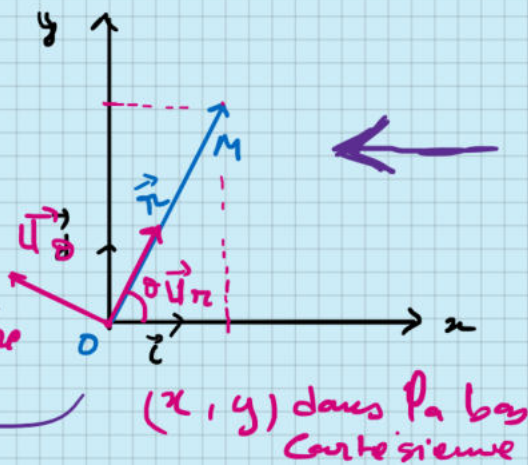 y
M
r⃗
u⃗θ
j⃗
θ u⃗r
O
i⃗
x
(x, y) dans la bas
Cartésienne